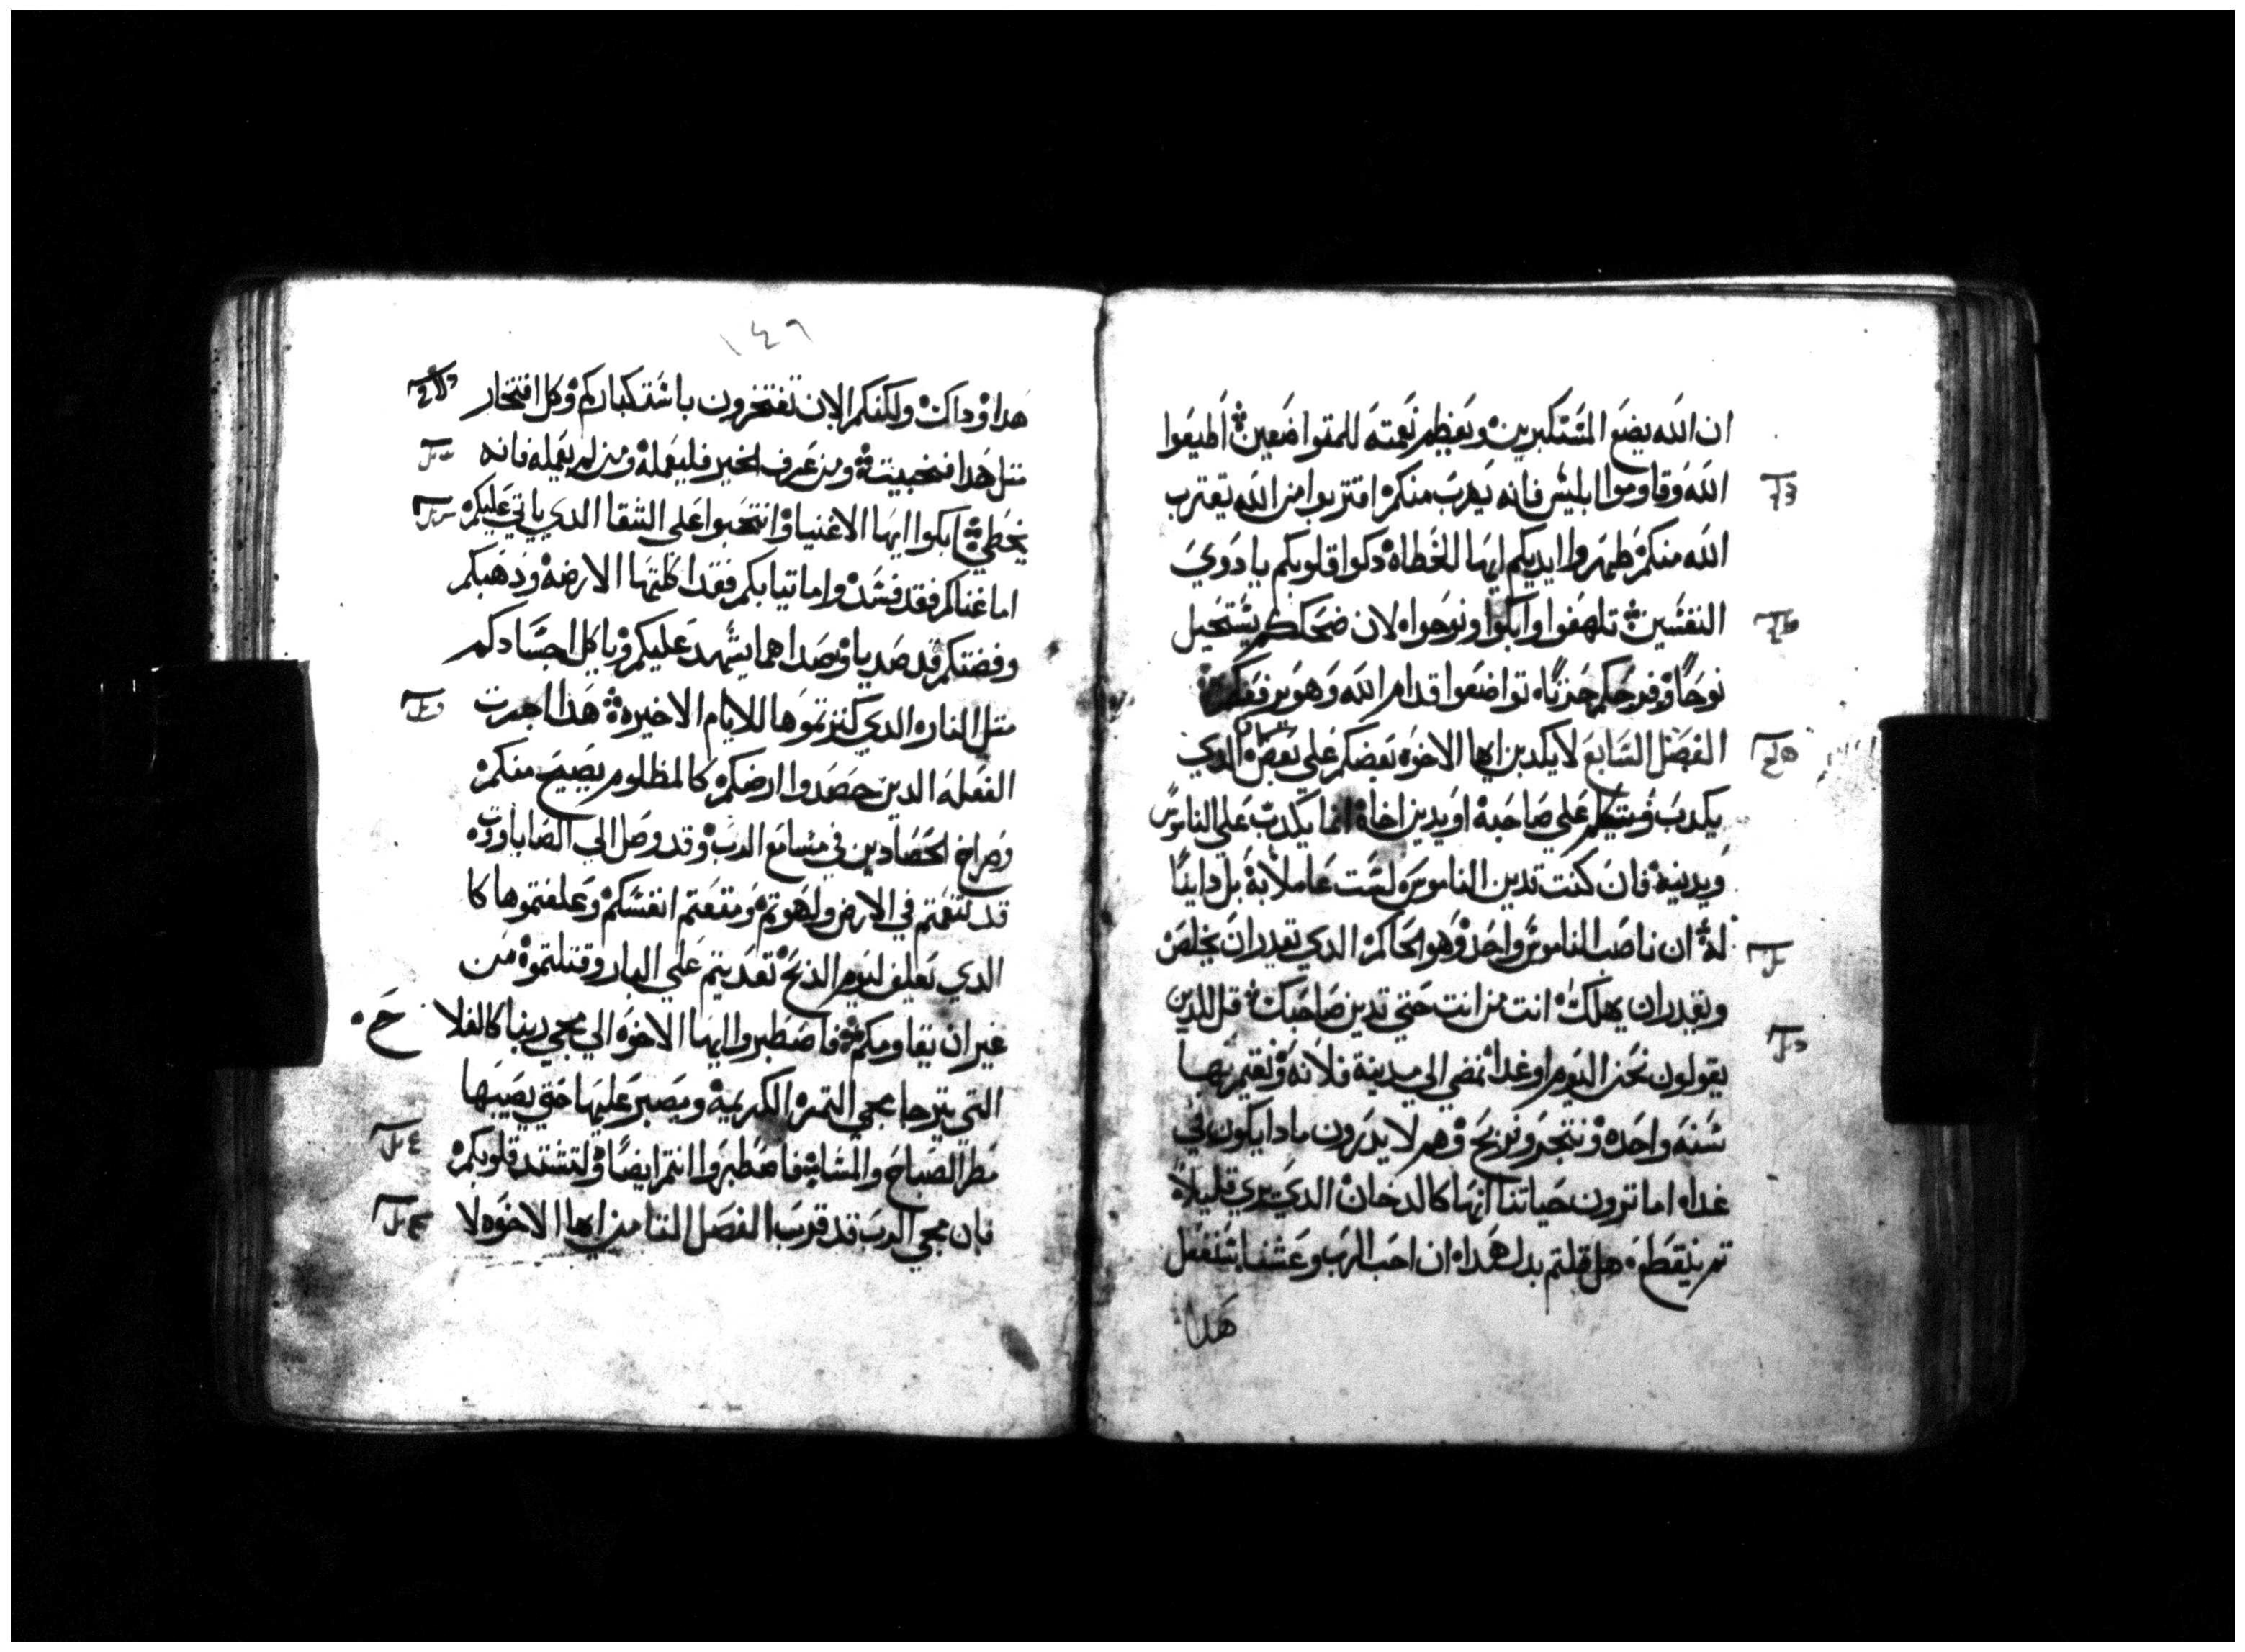 ان الله يضع المستكبرين ويعظم نعمته للمتواضعين اطيعوا
الله وقاوموا ابليس فانه يهرب منكم اقتربوا من الله يقترب
الله منكم طهروا ايديكم ايها الخطاه دكوا قلوبكم يا دوي
النفسين تلهفوا وابكوا ونوحوا لان ضحككم يستحيل
نوحًا وفرحكم حزنًا تواضعوا قدام الله وهو يرفعكم
الفصل السابع لا يكدبن ايها الاخوه بعضكم علي بعض الدي
يكدب ويتكلم علي صاحبه او يدين اخاه انما يكدب علي الناموس
ويدينه فان كنت تدين الناموس لست عاملا به بل داينًا
له ان ناصب الناموس واحد وهو الحاكم الدي يقدر ان يخلص
ويقدر ان يهلك انت من انت حتي تدين صاحبك قل للدين
يقولون نحن اليوم او غدا نمضي الي مدينة فلانه ونقيم بها
سنه واحده ونتجر ونربح وهم لا يدرون مادا يكون في
غداه اما ترون حياتنا انها كالدخان الدي يري قليلاً
تم ينقطع هل قلتم بدل هدا ان احب الرب وعشنا سنفعل
هدا
١٤٩
هدا وداك ولكنكم الان تفتخرون باستكباركم وكل افتخار
متل هدا فخبيت ومن عرف الخير فليعمله ومن لم يعمله فانه
يخطي ابكوا ايها الاغنيا وانتحبوا علي الشقا الدي ياتي عليكم
اما غناكم فقد فسد واما تيابكم فقد اكلتها الارضه ودهبكم
وفضتكم قد صديا وصداهما يشهد عليكم وياكل اجسادكم
متل النار الدي كنزتموها للايام الاخيره هدا اجرت
الفعله الدين حصدوا ارضكم كالمظلوم يصيح منكم
وصراخ الحصادين في مسامع الرب وقد وصل الي الصاباووت
قد تنعمتم في الارض ولهوتم ومتعتم انفسكم وعلفتموها كا
الدي يعلف ليوم الذبح تعديتم علي البار وقتلتموه من
غير ان يقاومكم فاصطبروا ايها الاخوه الي مجي ربنا كالفلا ح
التي يترجا مجي التمره الكريمه ويصبر عليها حتي يصيبها
مطر الصباح والمسا فاصطبروا انتم ايضًا ولتشتد قلوبكم
فان مجي الرب قد قرب الفصل التامن ايها الاخوه لا